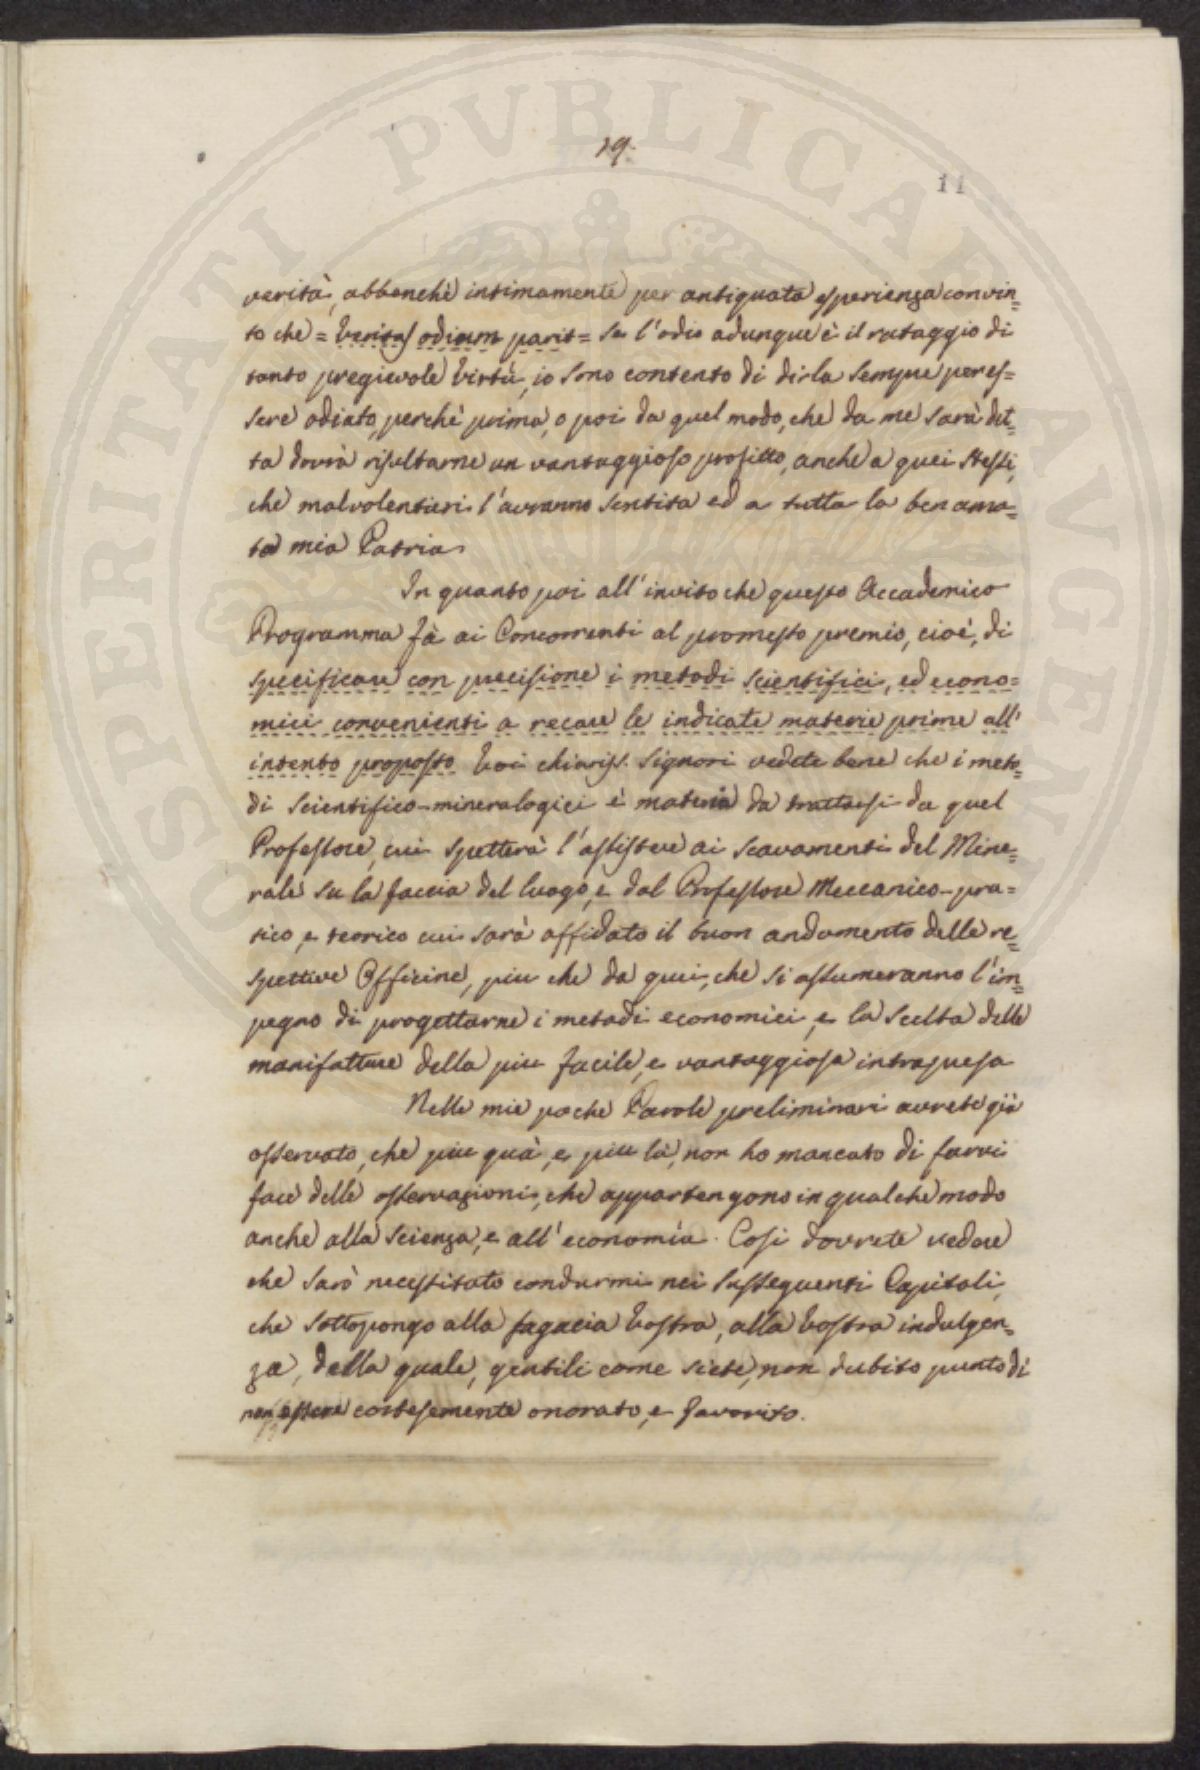 19.
11
verità, abbenchè intimamente per antiquata esperienza convin=
to che = Veritas odium parit = se l'odio adunque è il rataggio di
tanto pregievole Virtù, io sono contento di dirla sempre per es=
sere odiato, perchè prima, o poi da quel modo, che da me sarà det=
ta dovrà risultarne un vantaggioso profitto, anche a quei stessi,
che malvolentieri l'avranno sentita ed a tutta la ben ama=
ta mia Patria.
In quanto poi all'invito che questo Accademico
Programma fà ai Concorrenti al promesso premio, cioè, di
specificare con precisione i metodi scientifici, ed econo=
mici convenienti a recare le indicate materie prime all'
intento proposto. Voi chiariss. Signori vedete bene che i meto=
di scientifico-mineralogici è materia da trattarsi da quel
Professore, cui spetterà l'assistere ai scavamenti del Mine=
rale su la faccia del luogo, e dal Professore Meccanico-pra=
tico, e teorico cui sarà affidato il buon andamento delle re=
spettive Officine, piu che da quei, che si assumeranno l'im=
pegno di progettarne i metodi economici, e la scelta delle
manifatture della piu facile, e vantaggiosa intrapresa
Nelle mie poche Parole preliminari avrete già
osservato, che piu quà, e piu là, non ho mancato di farvi
face delle osservazioni, che appartengono in qualche modo
anche alla scienza, e all'economia. Così dovrete vedere
che sarò necessitato condurmi nei susseguenti Capitoli,
che sottopongo alla sagacia Vostra, alla Vostra indulgen=
za, della quale, gentili come siete, non dubito punto di
non essere cortesemente onorato, e favorito.
SPERITATI PVBLICAE AVGEN